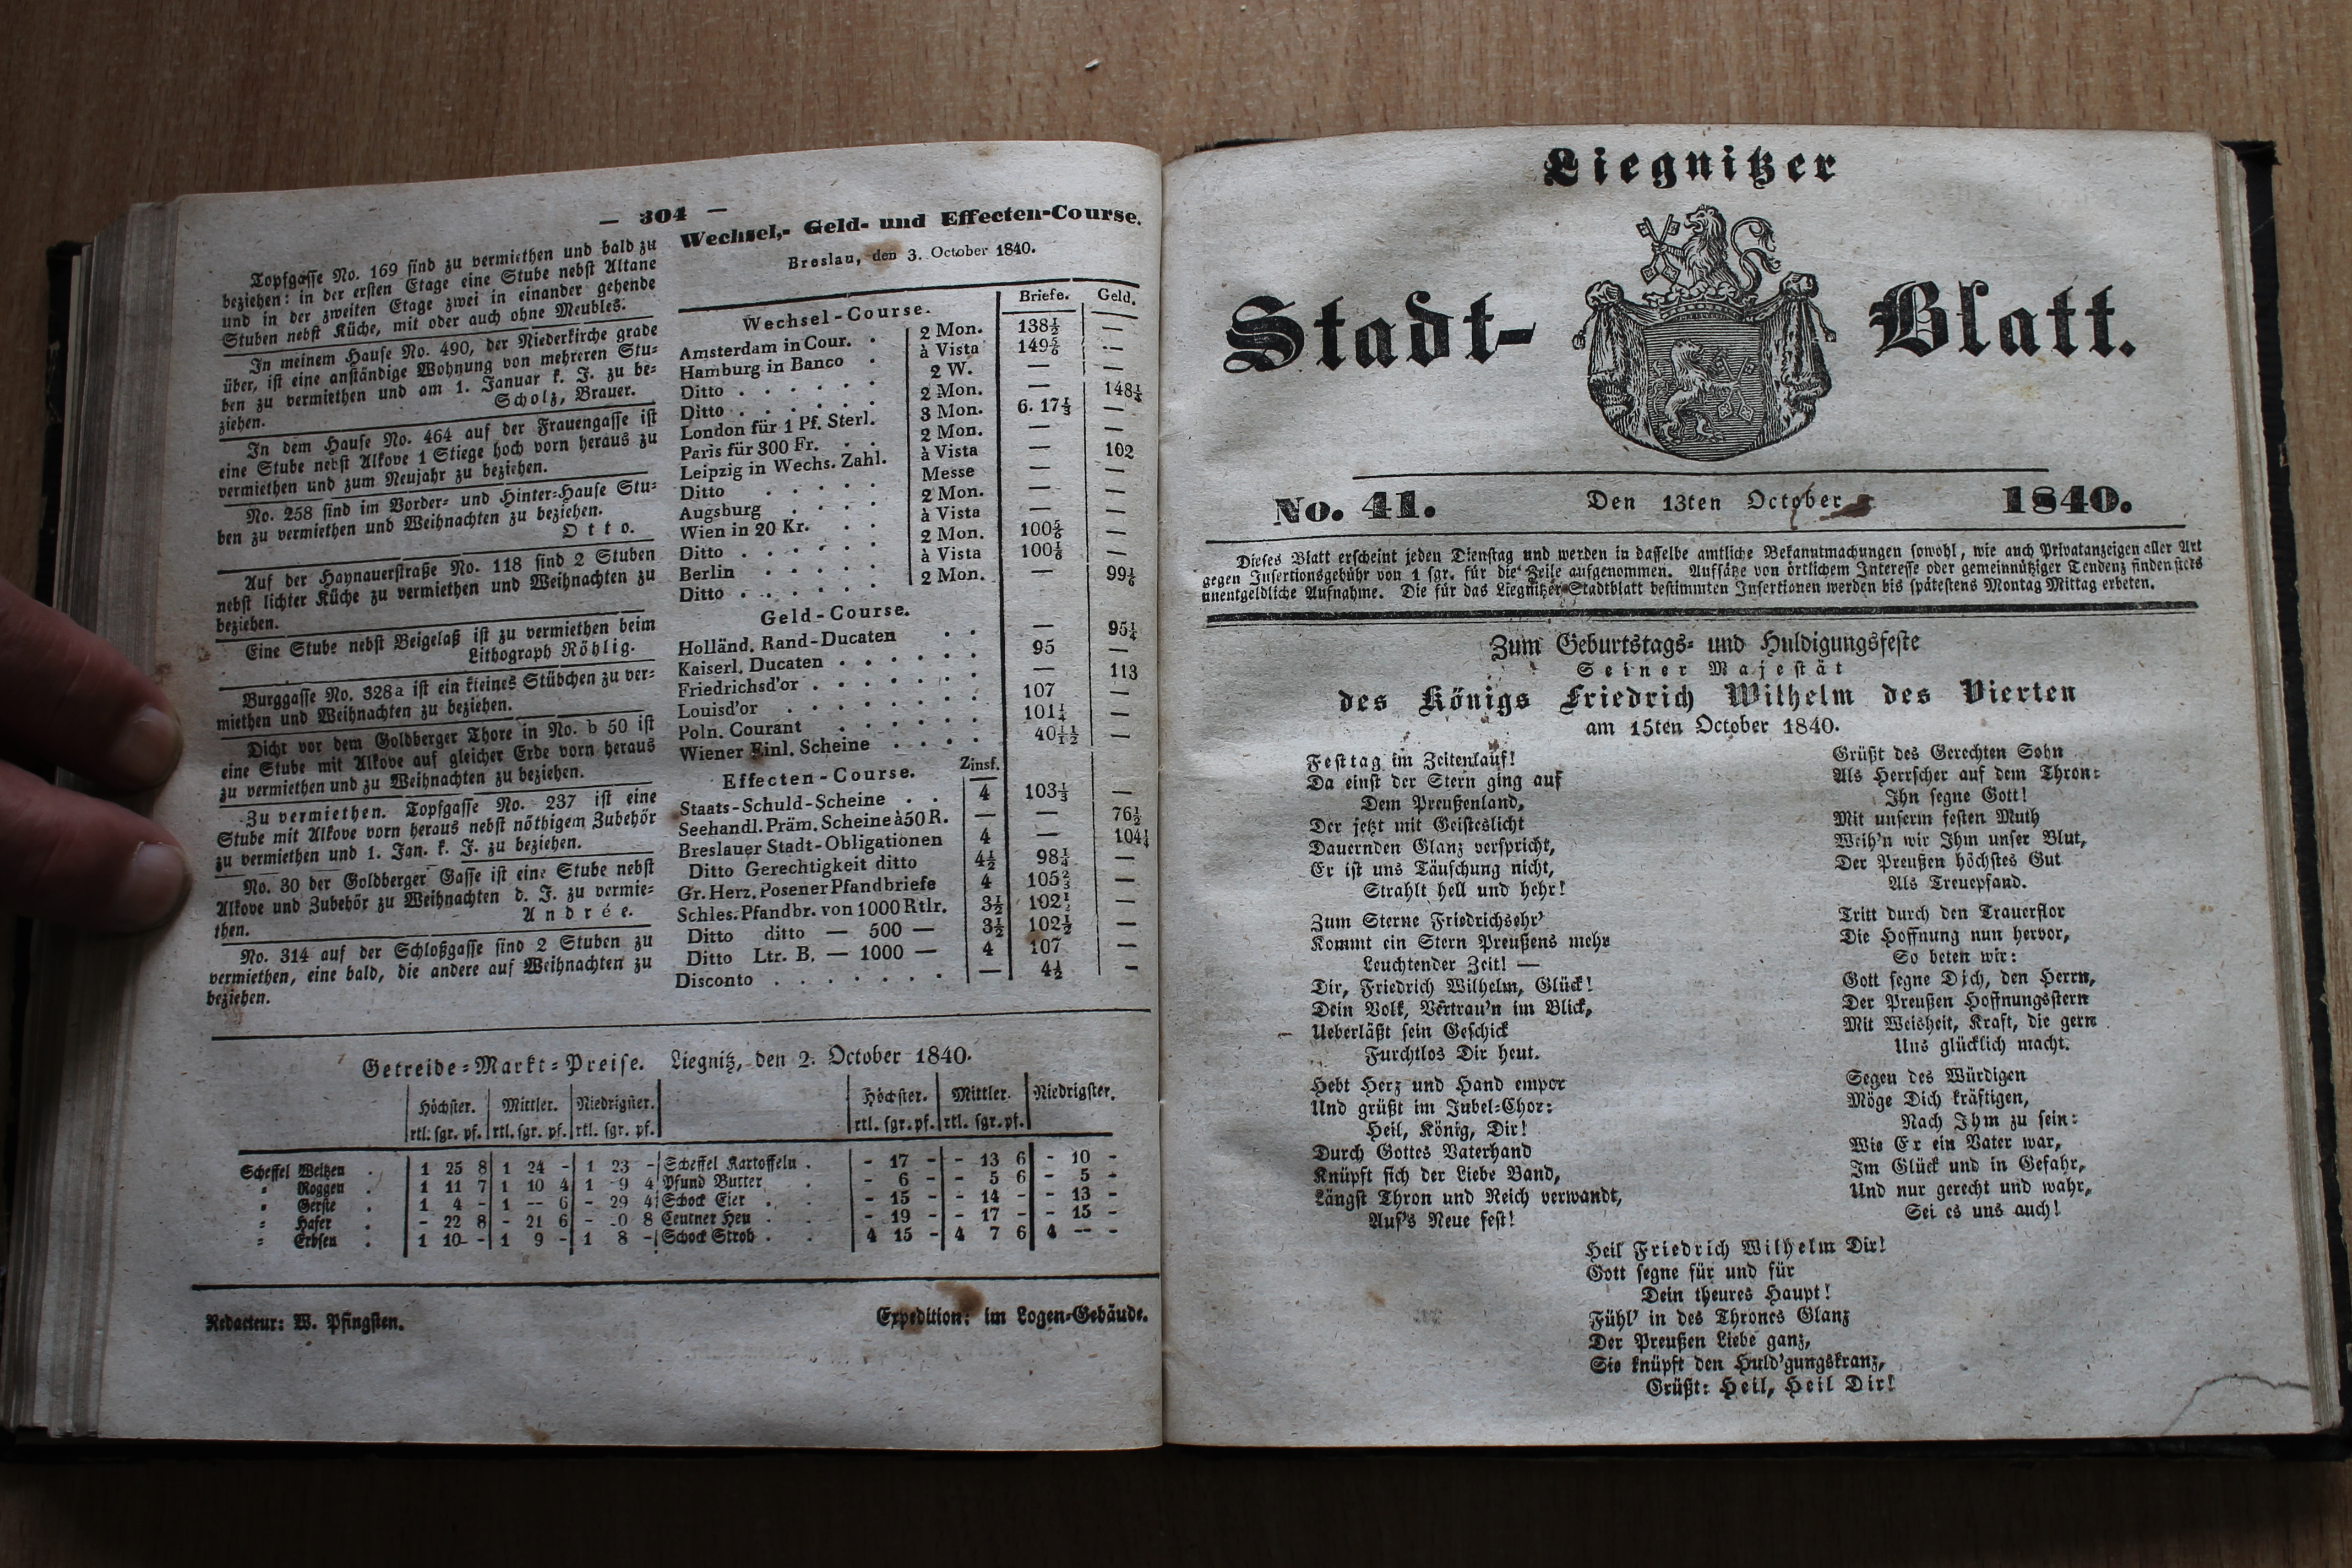 — 304 —
Topfgasse No. 169 sind zu vermiethen und bald zu
beziehen: in der ersten Etage eine Stube nebst Altane
und in der zweiten Etage zwei in einander gehende
Stuben nebst Küche, mit oder auch ohne Meubles.
In meinem Hause No. 490, der Niederkirche grade
über, ist eine anständige Wohnung von mehreren Stu=
ben zu vermiethen und am 1. Januar k. J. zu be=
ziehen. Scholz, Brauer.
In dem Hause No. 464 auf der Frauengasse ist
eine Stube nebst Alkove 1 Stiege hoch vorn heraus zu
vermiethen und zum Neujahr zu beziehen.
No. 258 sind im Vorder= und Hinter=Hause Stu=
ben zu vermiethen und Weihnachten zu beziehen.
Otto.
Auf der Haynauerstraße No. 118 sind 2 Stuben
nebst lichter Küche zu vermiethen und Weihnachten zu
beziehen.
Eine Stube nebst Beigelaß ist zu vermiethen beim
Lithograph Röhlig.
Burggasse No. 328a ist ein kleines Stübchen zu ver=
miethen und Weihnachten zu beziehen.
Dicht vor dem Goldberger Thore in No. b 50 ist
eine Stube mit Alkove auf gleicher Erde vorn heraus
zu vermiethen und zu Weihnachten zu beziehen.
Zu vermiethen. Topfgasse No. 237 ist eine
Stube mit Alkove vorn heraus nebst nöthigem Zubehör
zu vermiethen und 1. Jan. k. J. zu beziehen.
No. 30 der Goldberger Gasse ist eine Stube nebst
Alkove und Zubehör zu Weihnachten d. J. zu vermie=
then. Andrée.
No. 314 auf der Schloßgasse sind 2 Stuben zu
vermiethen, eine bald, die andere auf Weihnachten zu
beziehen.
Wechsel,- Geld- und Effecten-Course.
Breslau, den 3. October 1840.
Wechsel-Course. Briefe. Geld.
Amsterdam in Cour. . 2 Mon. 138½ —
Hamburg in Banco . à Vista 149⅚ —
Ditto . . . . . . 2 W. — —
Ditto . . . . . . 2 Mon. — 148¼
London für 1 Pf. Sterl. 3 Mon. 6. 17⅓ —
Paris für 300 Fr. . . 2 Mon. — —
Leipzig in Wechs. Zahl. à Vista — 102
Ditto . . . . . Messe — —
Augsburg . . . . 2 Mon. — —
Wien in 20 Kr. . . à Vista 100⅚ —
Ditto . . . . . . 2 Mon. 100⅙ —
Berlin . . . . . à Vista — 99⅚
Ditto . . . . . . 2 Mon.
Geld-Course.
Holländ. Rand-Ducaten . . — 95¼
Kaiserl. Ducaten . . . . . . 95 —
Friedrichsd'or . . . . . . . — 113
Louisd'or . . . . . . . . 107 —
Poln. Courant . . . . . . 101¼ —
Wiener Einl. Scheine . . . . 40½ —
Effecten-Course. Zinsf.
Staats-Schuld-Scheine . . 4 103⅓ —
Seehandl. Präm. Scheine à 50 R. — — 76½
Breslauer Stadt-Obligationen 4 — 104¼
Ditto Gerechtigkeit ditto 4½ 98¼ —
Gr. Herz. Posener Pfandbriefe 4 105⅔ —
Schles. Pfandbr. von 1000 Rtlr. 3½ 102½ —
Ditto ditto — 500 — 3½ 102½ —
Ditto Ltr. B. — 1000 — 4 107 —
Disconto . . . . . . — 4½ —
Getreide=Markt=Preise. Liegnitz, den 2. October 1840.
Höchster. Mittler. Niedrigster. Höchster. Mittler. Niedrigster.
rtl. sgr. pf. rtl. sgr. pf. rtl. sgr. pf. rtl. sgr. pf. rtl. sgr. pf.
Scheffel Weitzen . 1 25 8 1 24 - 1 23 - Scheffel Kartoffeln . - 17 - - 13 6 - 10 -
= Roggen . 1 11 7 1 10 4 1 9 4 Pfund Butter . - 6 - - 5 6 - 5 -
= Gerste . 1 4 - 1 -- 6 - 29 4 Schock Eier . . - 15 - - 14 - - 13 -
= Hafer . - 22 8 - 21 6 - 8 Centner Heu . . - 19 - - 17 - - 15 -
= Erbsen . 1 10 - 1 9 - 1 8 - Schock Stroh . . 4 15 - 4 7 6 4 -- -
Redacteur: W. Pfingsten. Expedition: im Logen=Gebäude.
Liegnitzer
Stadt- Blatt.
No. 41. Den 13ten October 1840.
Dieses Blatt erscheint jeden Dienstag und werden in dasselbe amtliche Bekanntmachungen sowohl, wie auch Privatanzeigen aller Art
gegen Insertionsgebühr von 1 sgr. für die Zeile aufgenommen. Aufsätze von örtlichem Interesse oder gemeinnütziger Tendenz finden stets
unentgeldliche Aufnahme. Die für das Liegnitzer Stadtblatt bestimmten Insertionen werden bis spätestens Montag Mittag erbeten.
Zum Geburtstags= und Huldigungsfeste
Seiner Majestät
des Königs Friedrich Wilhelm des Vierten
am 15ten October 1840.
Festtag im Zeitenlauf!
Da einst der Stern ging auf
Dem Preußenland,
Der jetzt mit Geisteslicht
Dauernden Glanz verspricht,
Er ist uns Täuschung nicht,
Strahlt hell und hehr!
Zum Sterne Friedrichsehr'
Kommt ein Stern Preußens mehr
Leuchtender Zeit! —
Dir, Friedrich Wilhelm, Glück!
Dein Volk, Vertrau'n im Blick,
Ueberläßt sein Geschick
Furchtlos Dir heut.
Hebt Herz und Hand empor
Und grüßt im Jubel=Chor:
Heil, König, Dir!
Durch Gottes Vaterhand
Knüpft sich der Liebe Band,
Längst Thron und Reich verwandt,
Auf's Neue fest!
Grüßt des Gerechten Sohn
Als Herrscher auf dem Thron:
Ihn segne Gott!
Mit unserm festen Muth
Weih'n wir Ihm unser Blut,
Der Preußen höchstes Gut
Als Treuepfand.
Tritt durch den Trauerflor
Die Hoffnung nun hervor,
So beten wir:
Gott segne Dich, den Herrn,
Der Preußen Hoffnungsstern
Mit Weisheit, Kraft, die gern
Uns glücklich macht.
Segen des Würdigen
Möge Dich kräftigen,
Nach Ihm zu sein:
Wie Er ein Vater war,
Im Glück und in Gefahr,
Und nur gerecht und wahr,
Sei es uns auch!
Heil Friedrich Wilhelm Dir!
Gott segne für und für
Dein theures Haupt!
Fühl' in des Thrones Glanz
Der Preußen Liebe ganz,
Sie knüpft den Huld'gungskranz,
Grüßt: Heil, Heil Dir!